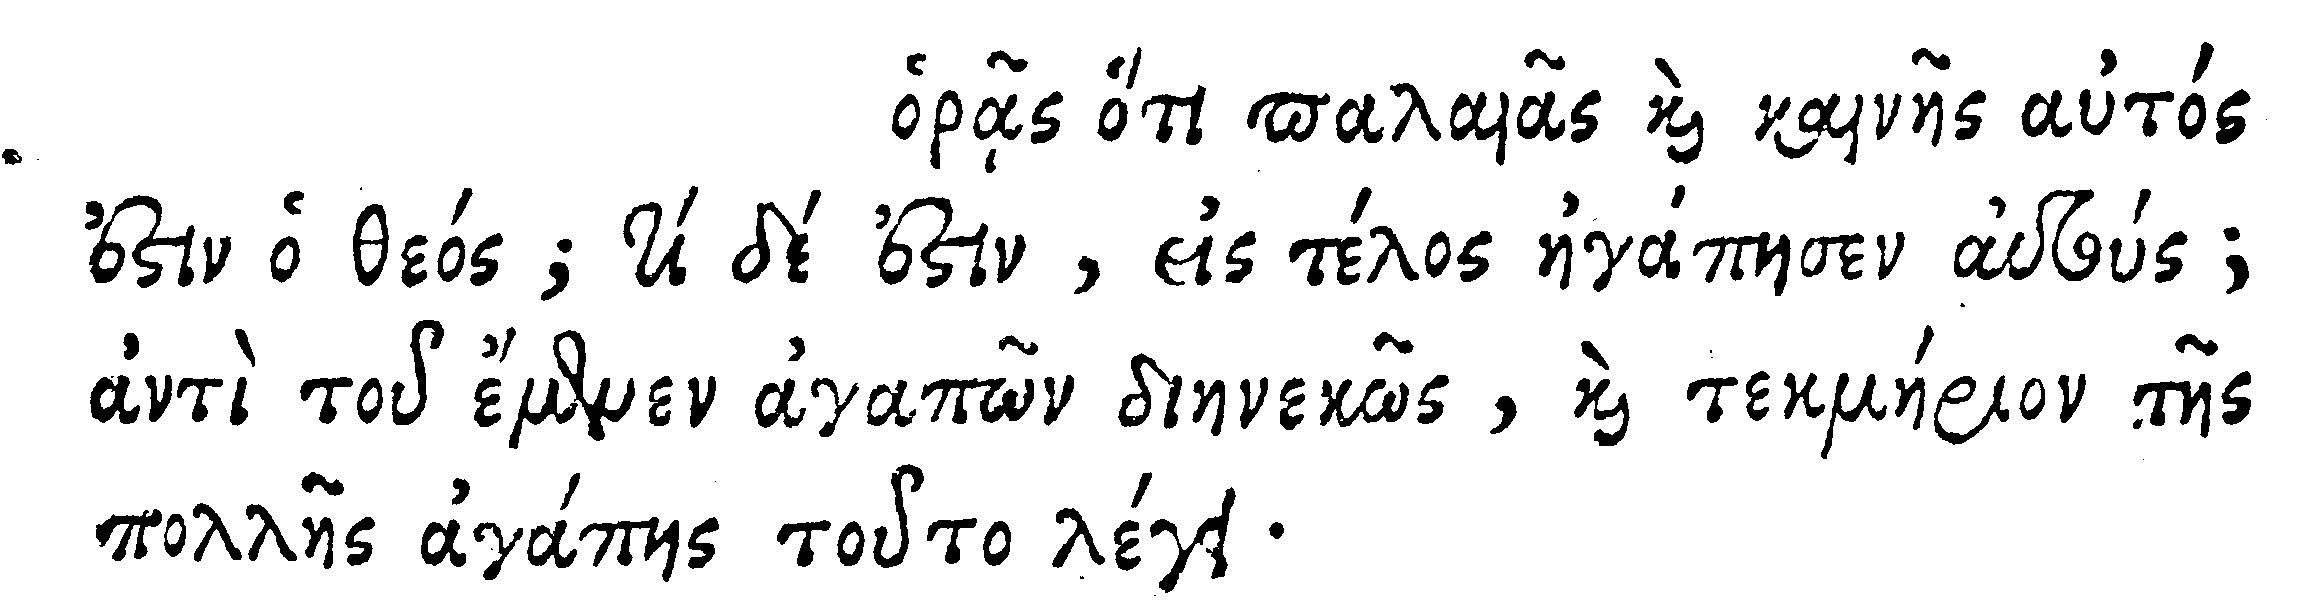 ὁρᾷς ὅτι παλαιᾶς καὶ καινῆς αὐτός
ἐστιν ὁ θεός; τί δέ ἐστιν, εἰς τέλος ἠγάπησεν αὐτούς;
ἀντὶ τοῦ ἔμεινεν ἀγαπῶν διηνεκῶς, καὶ τεκμήριον τῆς
πολλῆς ἀγάπης τοῦτο λέγει.